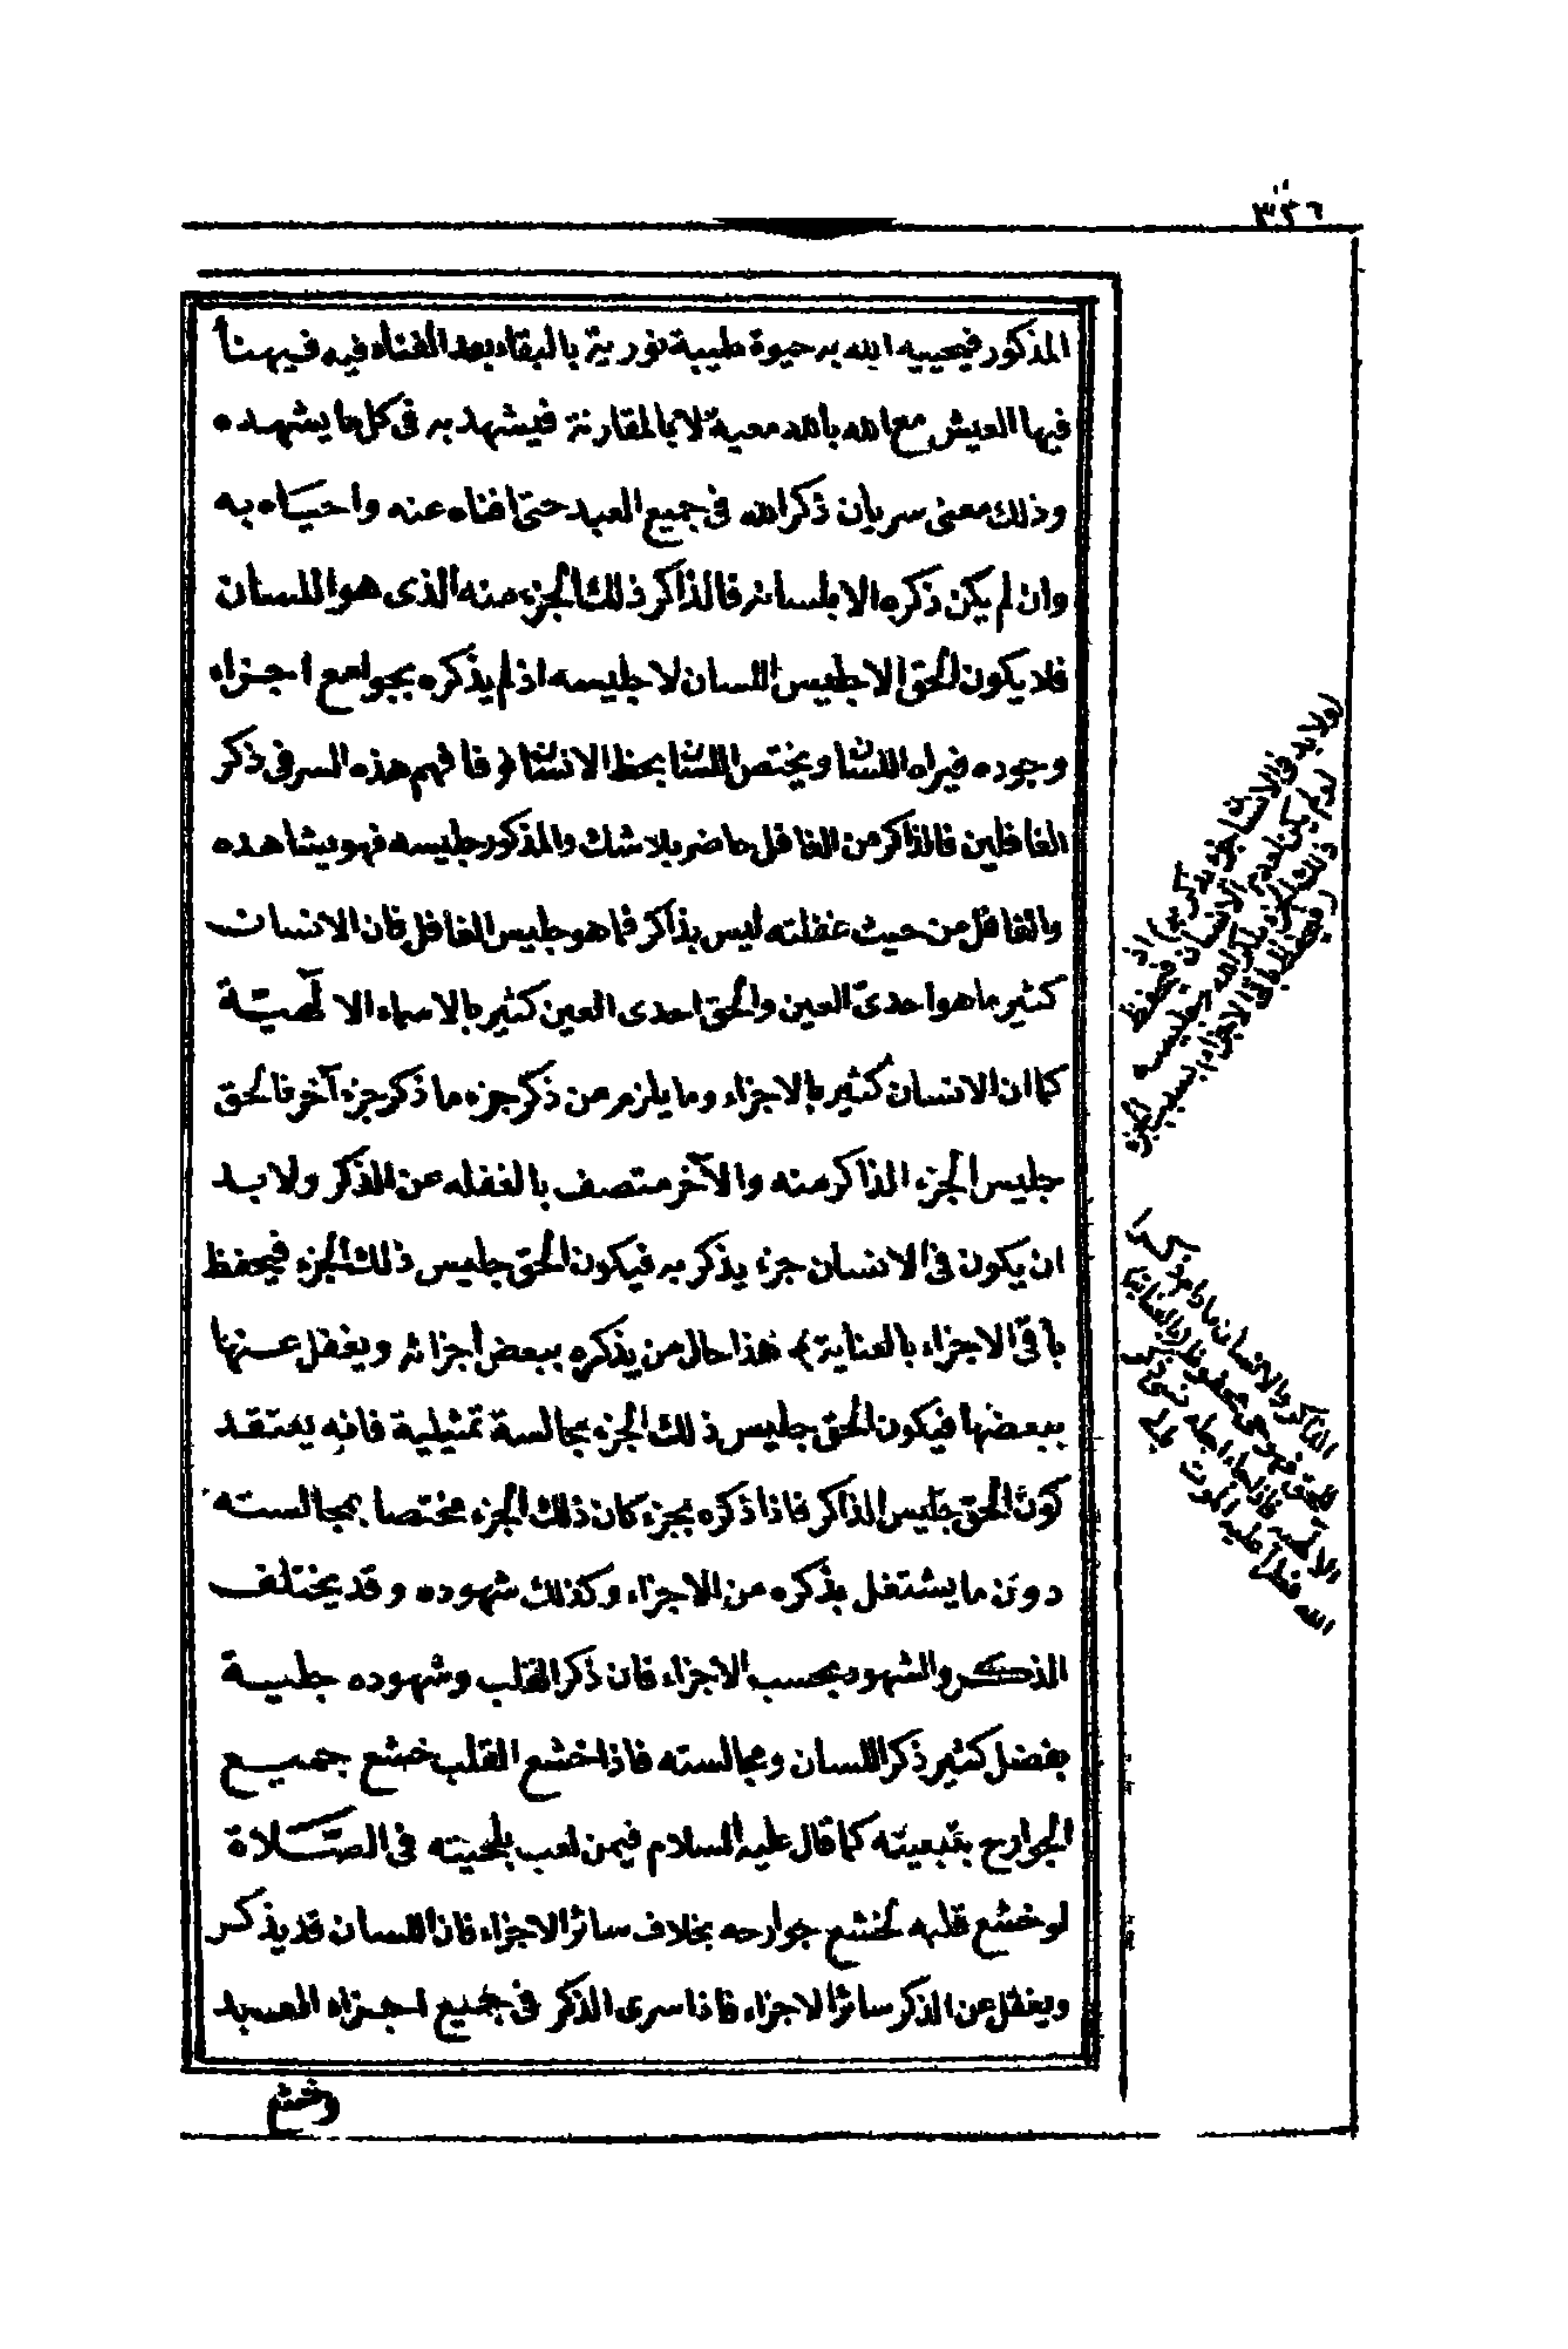 ٣٢٦
المذكور فيحييه الله به حيوة طيبة نورية بالبقاء بعد الفناء فيه فيهنأ
فيها العيش مع الله بالله معية لا بالمقارنة فيشهد به فى كل ما يشهده
وذلك معنى سريان ذكر الله فى جميع العبد حتى افناه عنه واحياه به
وان لم يكن ذكره الا بلسانه فالذاكر ذلك الجزء منه الذى هو اللسان
فلا يكون الحق الا جليس اللسان لا جليسه اذ لم يذكره بجوامع اجزاء
وجوده فيراه اللسان ويختص اللسان بحظ الانسان ( فافهم هذه السر فى ذكر
الغافلين فالذاكر من الغافل حاضر بلا شك والمذكور جليسه فهو يشاهده
والغافل من حيث غفلته ليس بذاكر فما هو جليس الغافل فان الانسان
كثير ما هو احدىّ العين والحق احدى العين كثير بالاسماء الالٓهيّة
كما ان الانسان كثير بالاجزاء وما يلزم من ذكر جزء ما ذكر جزء آخر فالحق
جليس الجزء الذاكر منه والآخر متصف بالغفله عن الذكر ولا بد
ان يكون فى الانسان جزء يذكر به فيكون الحق جليس ذلك الجزء فيحفظ
باقى الاجزاء بالعناية ) هذا حال من يذكره ببعض اجزائه ويغفل عنها
ببعضها فيكون الحق جليس ذلك الجزء مجالسة تمثيلية فانه يعتقد
كون الحق جليس الذاكر فاذا ذكره بجزء كان ذلك الجزء مختصا بمجالسته
دون ما يشتغل بذكره من الاجزاء وكذلك شهوده وقد يختلف
الذكر والشهود بحسب الاجزاء فان ذكر القلب وشهوده جلية
بفضل كثير ذكر اللسان ومجالسته فاذا خشع القلب خشع جميع
الجوارح بتبعيته كما قال عليه السلام فيمن لعب بلحيته فى الصلاة
لو خشع قلبه لخشع جوارحه بخلاف سائر الاجزاء فان اللسان قد يذكر
ويغفل عن الذكر سائر الاجزاء فاذا سرى الذكر فى جميع اجزاء العبد
وخشع